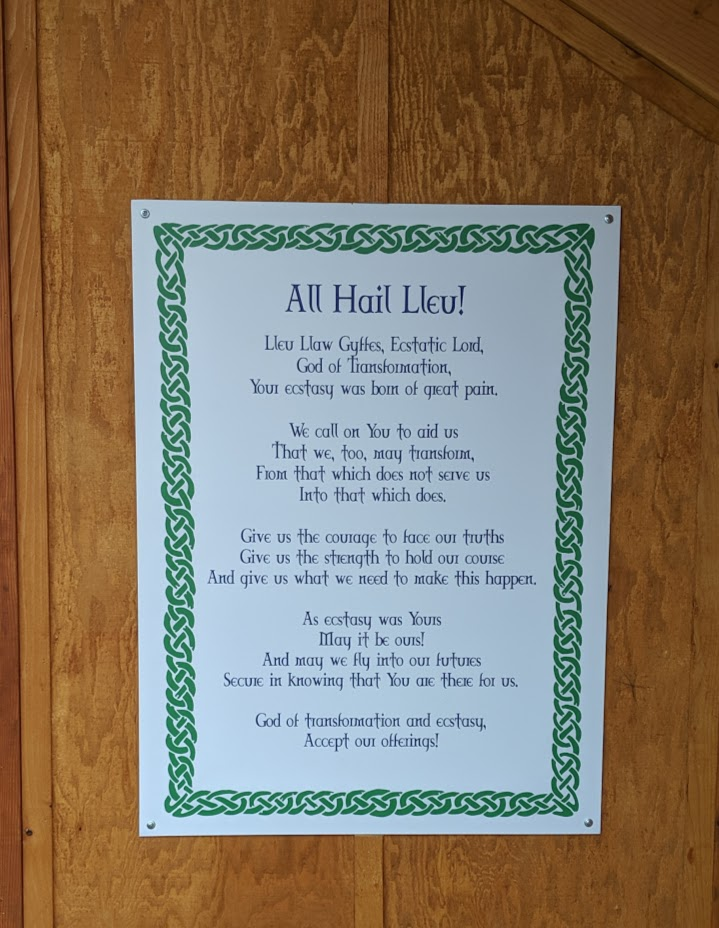 All Hail Lleu!
Lleu Llaw Gyffes, Ecstatic Lord,
God of Transformation,
Your ecstasy was born of great pain.
We call on You to aid us
That we, too, may transform,
From that which does not serve us
Into that which does.
Give us the courage to face our truths
Give us the strength to hold our course
And give us what we need to make this happen.
As ecstasy was Yours
May it be ours!
And may we fly into our futures
Secure in knowing that You are there for us.
God of transformation and ecstasy,
Accept our offerings!